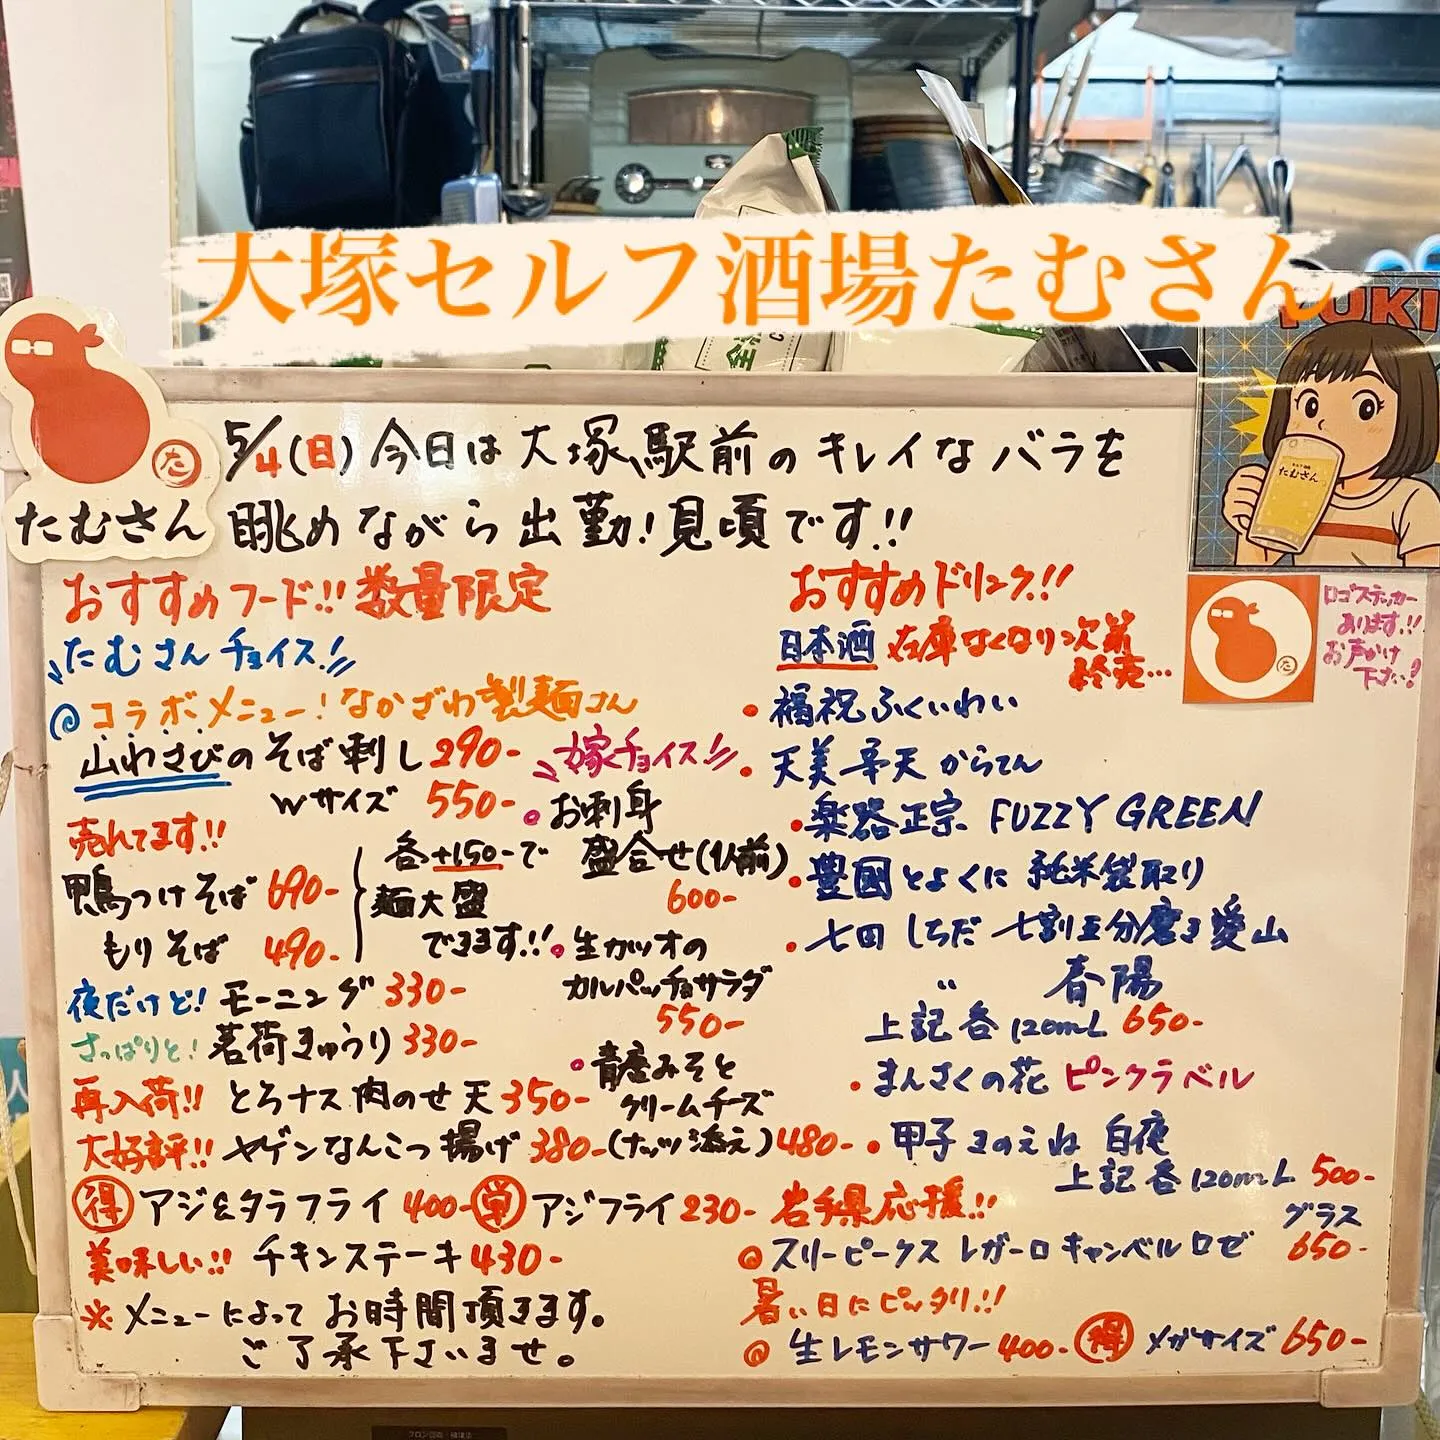 大塚セルフ酒場たむさん
YUKI
たむさん
た
たむさん
5/4(日)今日は大塚駅前のキレイなバラを
眺めながら出勤!見頃です!!
おすすめフード!!数量限定
たむさんチョイス!
コラボメニュー!なかざわ製麺さん
山わさびのそば刺し290-
Wサイズ 550-
売れてます!!
鴨つけそば 690-
もりそば 490-
各+150-で
麺大盛
できます!!
夜だけど!モーニング 330-
さっぱりと!茗荷きゅうり 330-
再入荷!!とろナス肉のせ天 350-
大好評!!ヤゲンなんこつ揚げ 380-
得 アジ&タラフライ 400- 単 アジフライ 230-
美味しい!!チキンステーキ 430-
※メニューによってお時間頂きます。
ご了承下さいませ。
嫁チョイス!!
お刺身
盛合せ(1人前)
600-
生カツオの
カルパッチョサラダ
550-
青唐みそと
クリームチーズ
(ナッツ添え)480-
おすすめドリンク!!
日本酒 在庫なくなり次第
終売…
・福祝 ふくいわい
・天美 辛天 からてん
・楽器正宗 FUZZY GREEN
・豊國 とよくに 純米袋取り
・七田 しちだ 七割五分磨き愛山
〃 春陽
上記各120mL 650-
・まんさくの花 ピンクラベル
・甲子 きのえね 白夜
上記各120mL 500-
岩手県応援!!
グラス
スリーピークス レガーロ キャンベル ロゼ 650-
暑い日にピッタリ!!
生レモンサワー 400- 得 メガサイズ 650-
た
ロゴステッカー
あります!!
お声かけ
下さい!